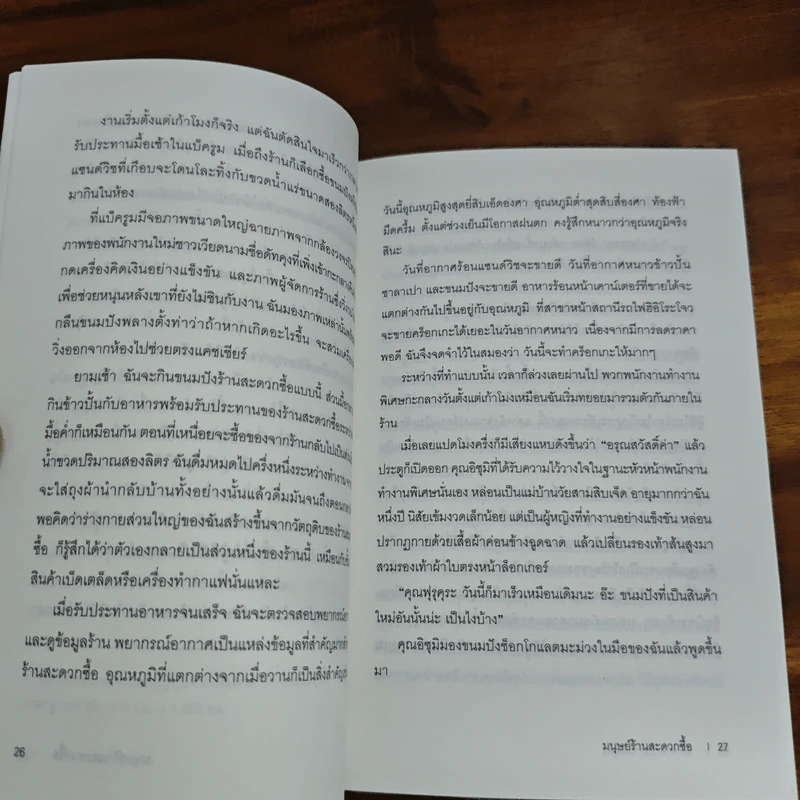 งานเริ่มตั้งแต่เก้าโมงก็จริง แต่ฉันตัดสินใจมาเร็วกว่า
รับประทานมื้อเช้าในแบ็ครูม เมื่อถึงร้านก็เลือกซื้อขนมปัง
แซนด์วิชที่เกือบจะโดนโละทิ้งกับขวดน้ำแร่ขนาดสองลิตร
มากินในห้อง
ที่แบ็ครูมมีจอภาพขนาดใหญ่ฉายภาพจากกล้องวงจร
ภาพของพนักงานใหม่ชาวเวียดนามชื่อดัทคุงที่เพิ่งเข้ากะกลาง
กดเครื่องคิดเงินอย่างแข็งขัน และภาพผู้จัดการร้านซึ่ง
เพื่อช่วยหนุนหลังเขาที่ยังไม่ชินกับงาน ฉันมองภาพเหล่านั้น
กลืนขนมปังพลางตั้งท่าว่าถ้าหากเกิดอะไรขึ้น จะสวม
วิ่งออกจากห้องไปช่วยตรงแคชเชียร์
ยามเช้า ฉันจะกินขนมปังร้านสะดวกซื้อแบบนี้ ส่วนมื้อ
กินข้าวปั้นกับอาหารพร้อมรับประทานของร้านสะดวกซื้อ
มื้อค่ำก็เหมือนกัน ตอนที่เหนื่อยจะซื้อของจากร้านกลับไป
น้ำขวดปริมาณสองลิตร ฉันดื่มหมดไปครึ่งหนึ่งระหว่างทำงาน
จะใส่ถุงผ้านำกลับบ้านทั้งอย่างนั้นแล้วดื่มมันจนถึงตอน
พอคิดว่าร่างกายส่วนใหญ่ของฉันสร้างขึ้นจากวัตถุดิบของร้าน
ซื้อ ก็รู้สึกได้ว่าตัวเองกลายเป็นส่วนหนึ่งของร้านนี้ เหมือนกับ
สินค้าเบ็ดเตล็ดหรือเครื่องทำกาแฟนั่นแหละ
เมื่อรับประทานอาหารจนเสร็จ ฉันจะตรวจสอบพยากรณ์
และดูข้อมูลร้าน พยากรณ์อากาศเป็นแหล่งข้อมูลที่สำคัญมาก
ร้านสะดวกซื้อ อุณหภูมิที่แตกต่างจากเมื่อวานก็เป็นสิ่งสำคัญ
26
วันนี้อุณหภูมิสูงสุดยี่สิบเอ็ดองศา อุณหภูมิต่ำสุดสิบสี่องศา ท้องฟ้า
มืดครึ้ม ตั้งแต่ช่วงเย็นมีโอกาสฝนตก คงรู้สึกหนาวกว่าอุณหภูมิจริง
สินะ
วันที่อากาศร้อนแซนด์วิชจะขายดี วันที่อากาศหนาวข้าวปั้น
ซาลาเปา และขนมปังจะขายดี อาหารร้อนหน้าเคาน์เตอร์ที่ขายได้จะ
แตกต่างกันไปขึ้นอยู่กับอุณหภูมิ ที่สาขาหน้าสถานีรถไฟฮิอิโระโจว
จะขายคร็อกเกะได้เยอะในวันอากาศหนาว เนื่องจากมีการลดราคา
พอดี ฉันจึงจดจำไว้ในสมองว่า วันนี้จะทำคร็อกเกะให้มากๆ
ระหว่างที่ทำแบบนั้น เวลาก็ล่วงเลยผ่านไป พวกพนักงานทำงาน
พิเศษกะกลางวันตั้งแต่เก้าโมงเหมือนฉันเริ่มทยอยมารวมตัวกันภายใน
ร้าน
เมื่อเลยแปดโมงครึ่งก็มีเสียงแหบดังขึ้นว่า “อรุณสวัสดิ์ค่า” แล้ว
ประตูก็เปิดออก คุณอิซุมิที่ได้รับความไว้วางใจในฐานะหัวหน้าพนักงาน
ทำงานพิเศษนั่นเอง หล่อนเป็นแม่บ้านวัยสามสิบเจ็ด อายุมากกว่าฉัน
หนึ่งปี นิสัยเข้มงวดเล็กน้อย แต่เป็นผู้หญิงที่ทำงานอย่างแข็งขัน หล่อน
ปรากฏกายด้วยเสื้อผ้าค่อนข้างฉูดฉาด แล้วเปลี่ยนรองเท้าส้นสูงมา
สวมรองเท้าผ้าใบตรงหน้าล็อกเกอร์
“คุณฟุรุคุระ วันนี้ก็มาเร็วเหมือนเดิมนะ อ๊ะ ขนมปังที่เป็นสินค้า
ใหม่อันนั้นน่ะ เป็นไงบ้าง”
คุณอิซุมิมองขนมปังช็อกโกแลตมะม่วงในมือของฉันแล้วพูดขึ้น
มา
มนุษย์ร้านสะดวกซื้อ | 27